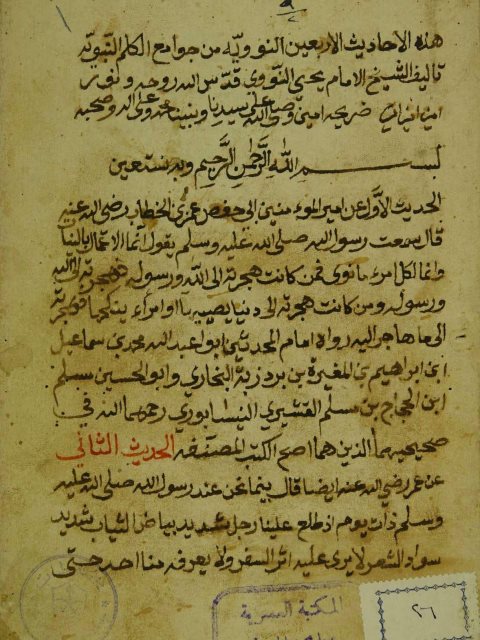 هذه الاحاديث الاربعين النوويه من جوامع الكلم النبويه
تاليف الشيخ الامام يحيى النووي قدس الله روحه ونور
ضريحه امين وصلى الله على سيدنا ونبينا محمد وعلى اله وصحبه
بسم الله الرحمن الرحيم وبه نستعين
الحديث الاول عن امير المومنين ابي حفص عمر بن الخطاب رضي الله عنه
قال سمعت رسول الله صلى الله عليه وسلم يقول انما الاعمال بالنيات
وانما لكل امرء ما نوى فمن كانت هجرته الى الله ورسوله فهجرته الى الله
ورسوله ومن كانت هجرته الى دنيا يصيبها او امراة ينكحها فهجرته
الى ما هاجر اليه رواه امام المحدثين ابو عبد الله محمد بن سماعيل
ابن ابراهيم بن المغيرة بن بردزبة البخاري وابو الحسين مسلم
ابن الحجاج بن مسلم القشيري النيسابوري رحمهما الله في
صحيحيهما الذين هما اصح الكتب المصنفه الحديث الثاني
عن عمر رضي الله عنه ايضا قال بينما نحن عند رسول الله صلى الله عليه
وسلم ذات يوم اذ طلع علينا رجل شديد بياض الثياب شديد
سواد الشعر لا يرى عليه اثر السفر ولا يعرفه منا احد حتى
المكتبة
٢٦